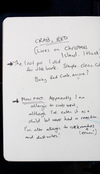 CRAB, RED
(Lives on Christmas
Island I think)
The last pic I did
for sketchbook. Simple clean
Bang Red Crab, anyone?
MAIN FACT: Apparently I am
allergic to crab meat,
although I've eaten it as a
child but never had a reaction.
I'm also allergic to
and